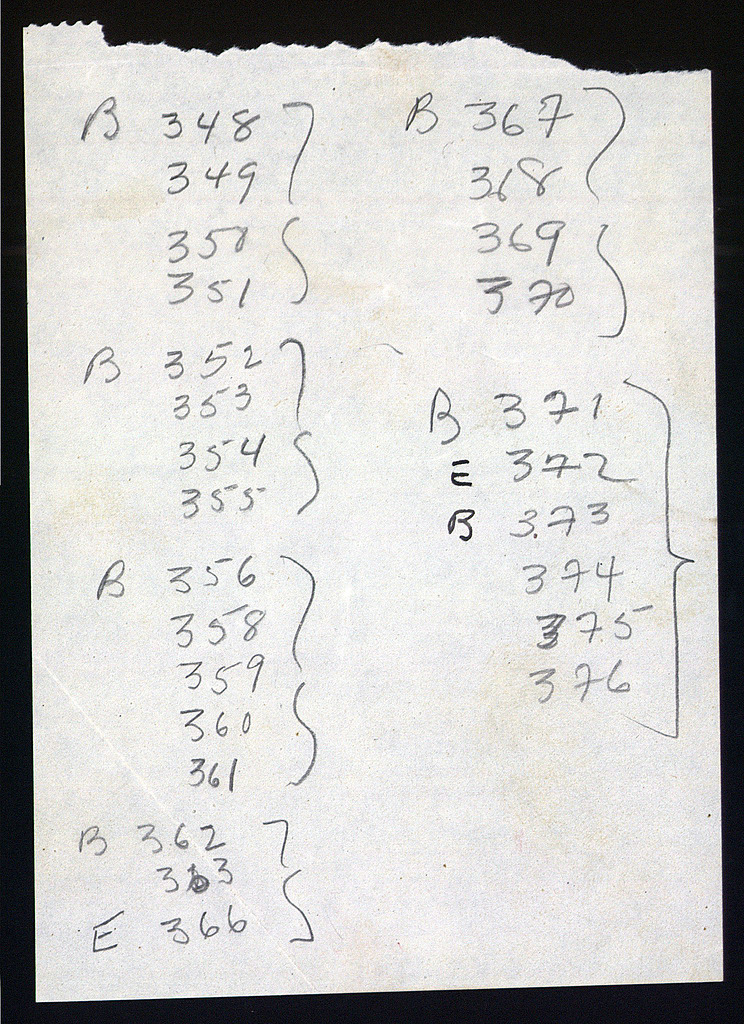 B 348
349
350
351
B 352
353
354
355
B 356
358
359
360
361
B 362
363
E 366
B 367
368
369
370
B 371
E 372
B 373
374
375
376